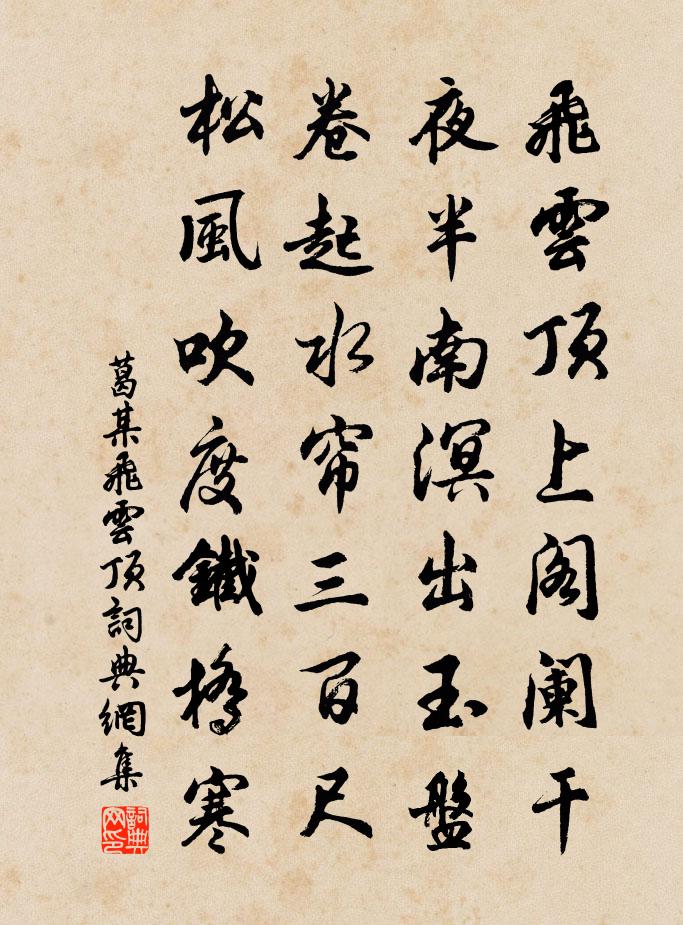 飛雲頂上閣闌干
夜半南溟出玉盤
卷起水帘三百尺
松風吹度鐵橋寒
葛某飛雲頂詞典網集
詞典网印